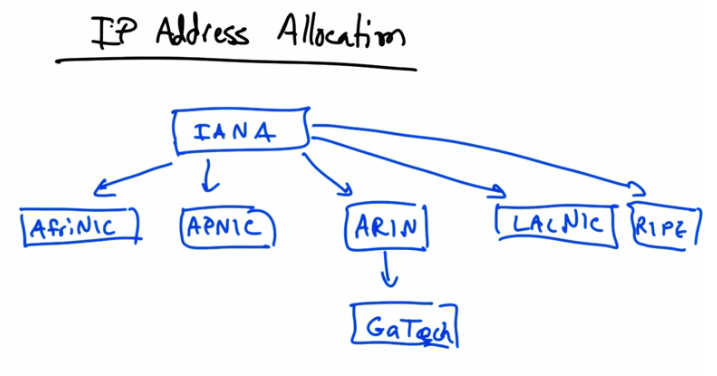 IP Address Allocation
IANA
AfriNIC
APNIC
ARIN
LACNIC
RIPE
GaTech